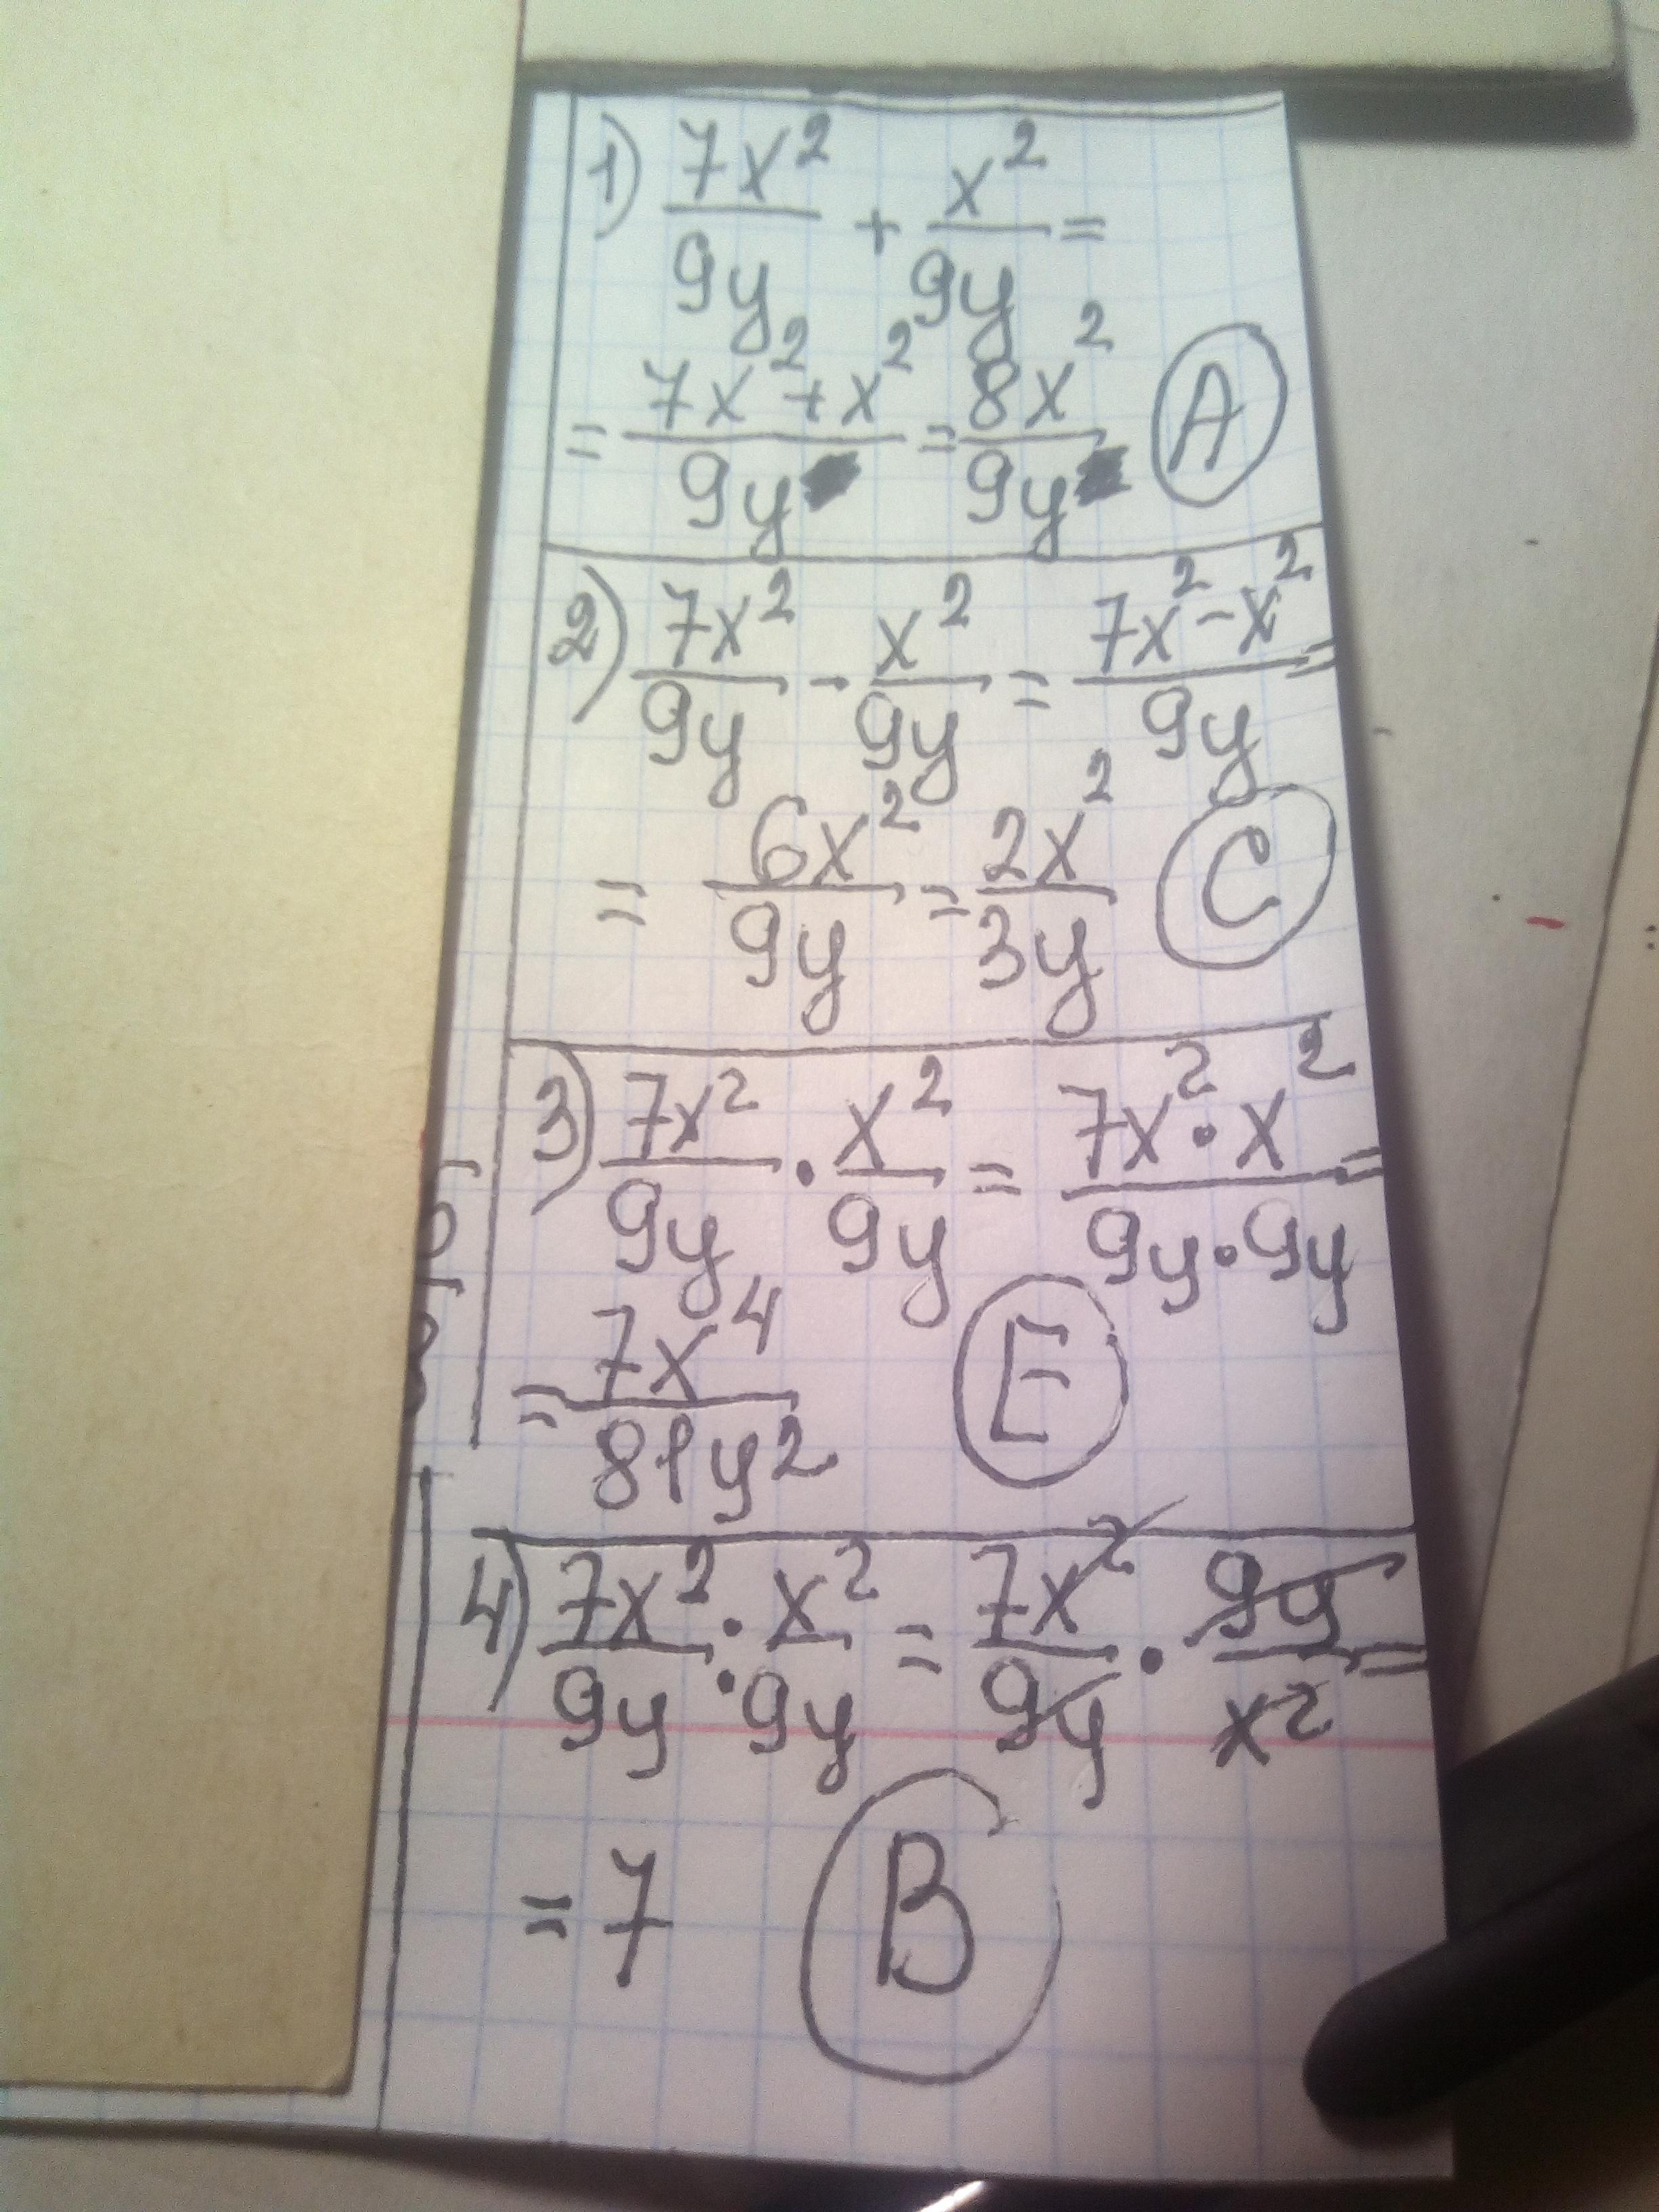 1) 7x²/9y + x²/9y =
= (7x² + x²)/9y = 8x²/9y A
2) 7x²/9y - x²/9y = (7x² - x²)/9y =
= 6x²/9y = 2x²/3y C
3) 7x²/9y · x²/9y = (7x² · x²)/(9y · 9y) =
= 7x⁴/81y² E
4) 7x²/9y : x²/9y = 7x²/9y · 9y/x² =
= 7 B